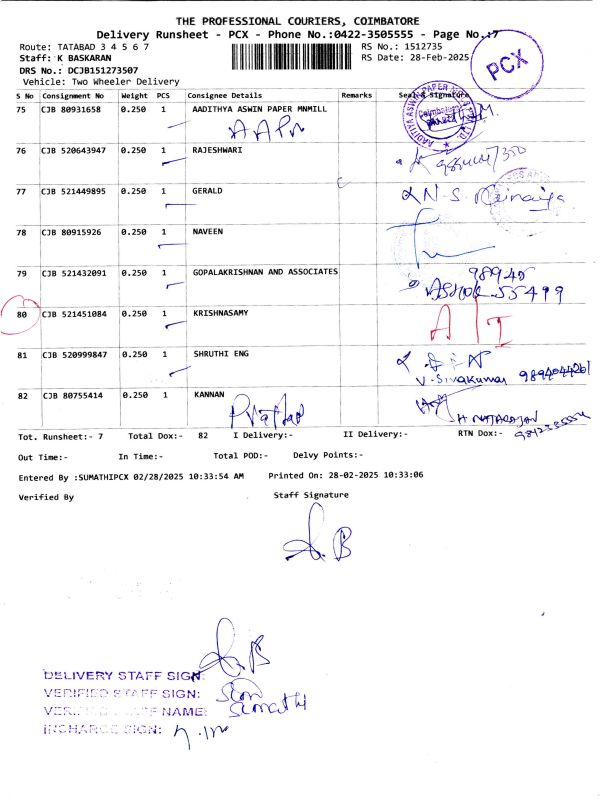 THE PROFESSIONAL COURIERS, COIMBATORE
Delivery Runsheet - PCX - Phone No.:0422-3505555 - Page No.:7
Route: TATABAD 3 4 5 6 7 RS No.: 1512735
Staff: K BASKARAN RS Date: 28-Feb-2025
DRS No.: DCJB151273507
Vehicle: Two Wheeler Delivery
PCX
S No Consignment No Weight PCS Consignee Details Remarks Seal & Signature
75 CJB 80931658 0.250 1 AADITHYA ASWIN PAPER MNMILL
76 CJB 520643947 0.250 1 RAJESHWARI
77 CJB 521449895 0.250 1 GERALD
N-S
78 CJB 80915926 0.250 1 NAVEEN
79 CJB 521432091 0.250 1 GOPALAKRISHNAN AND ASSOCIATES
98945
ASHOK 55499
80 CJB 521451084 0.250 1 KRISHNASAMY
81 CJB 520999847 0.250 1 SHRUTHI ENG
V. Sivakumar 9894044261
82 CJB 80755414 0.250 1 KANNAN
H NATARAJAN
Tot. Runsheet:- 7 Total Dox:- 82 I Delivery:- II Delivery:- RTN Dox:-
Out Time:- In Time:- Total POD:- Delvy Points:-
Entered By :SUMATHIPCX 02/28/2025 10:33:54 AM Printed On: 28-02-2025 10:33:06
Verified By Staff Signature
DELIVERY STAFF SIGN:
VERIFIED STAFF SIGN:
VERIFIED STAFF NAME: Sumathi
INCHARGE SIGN: